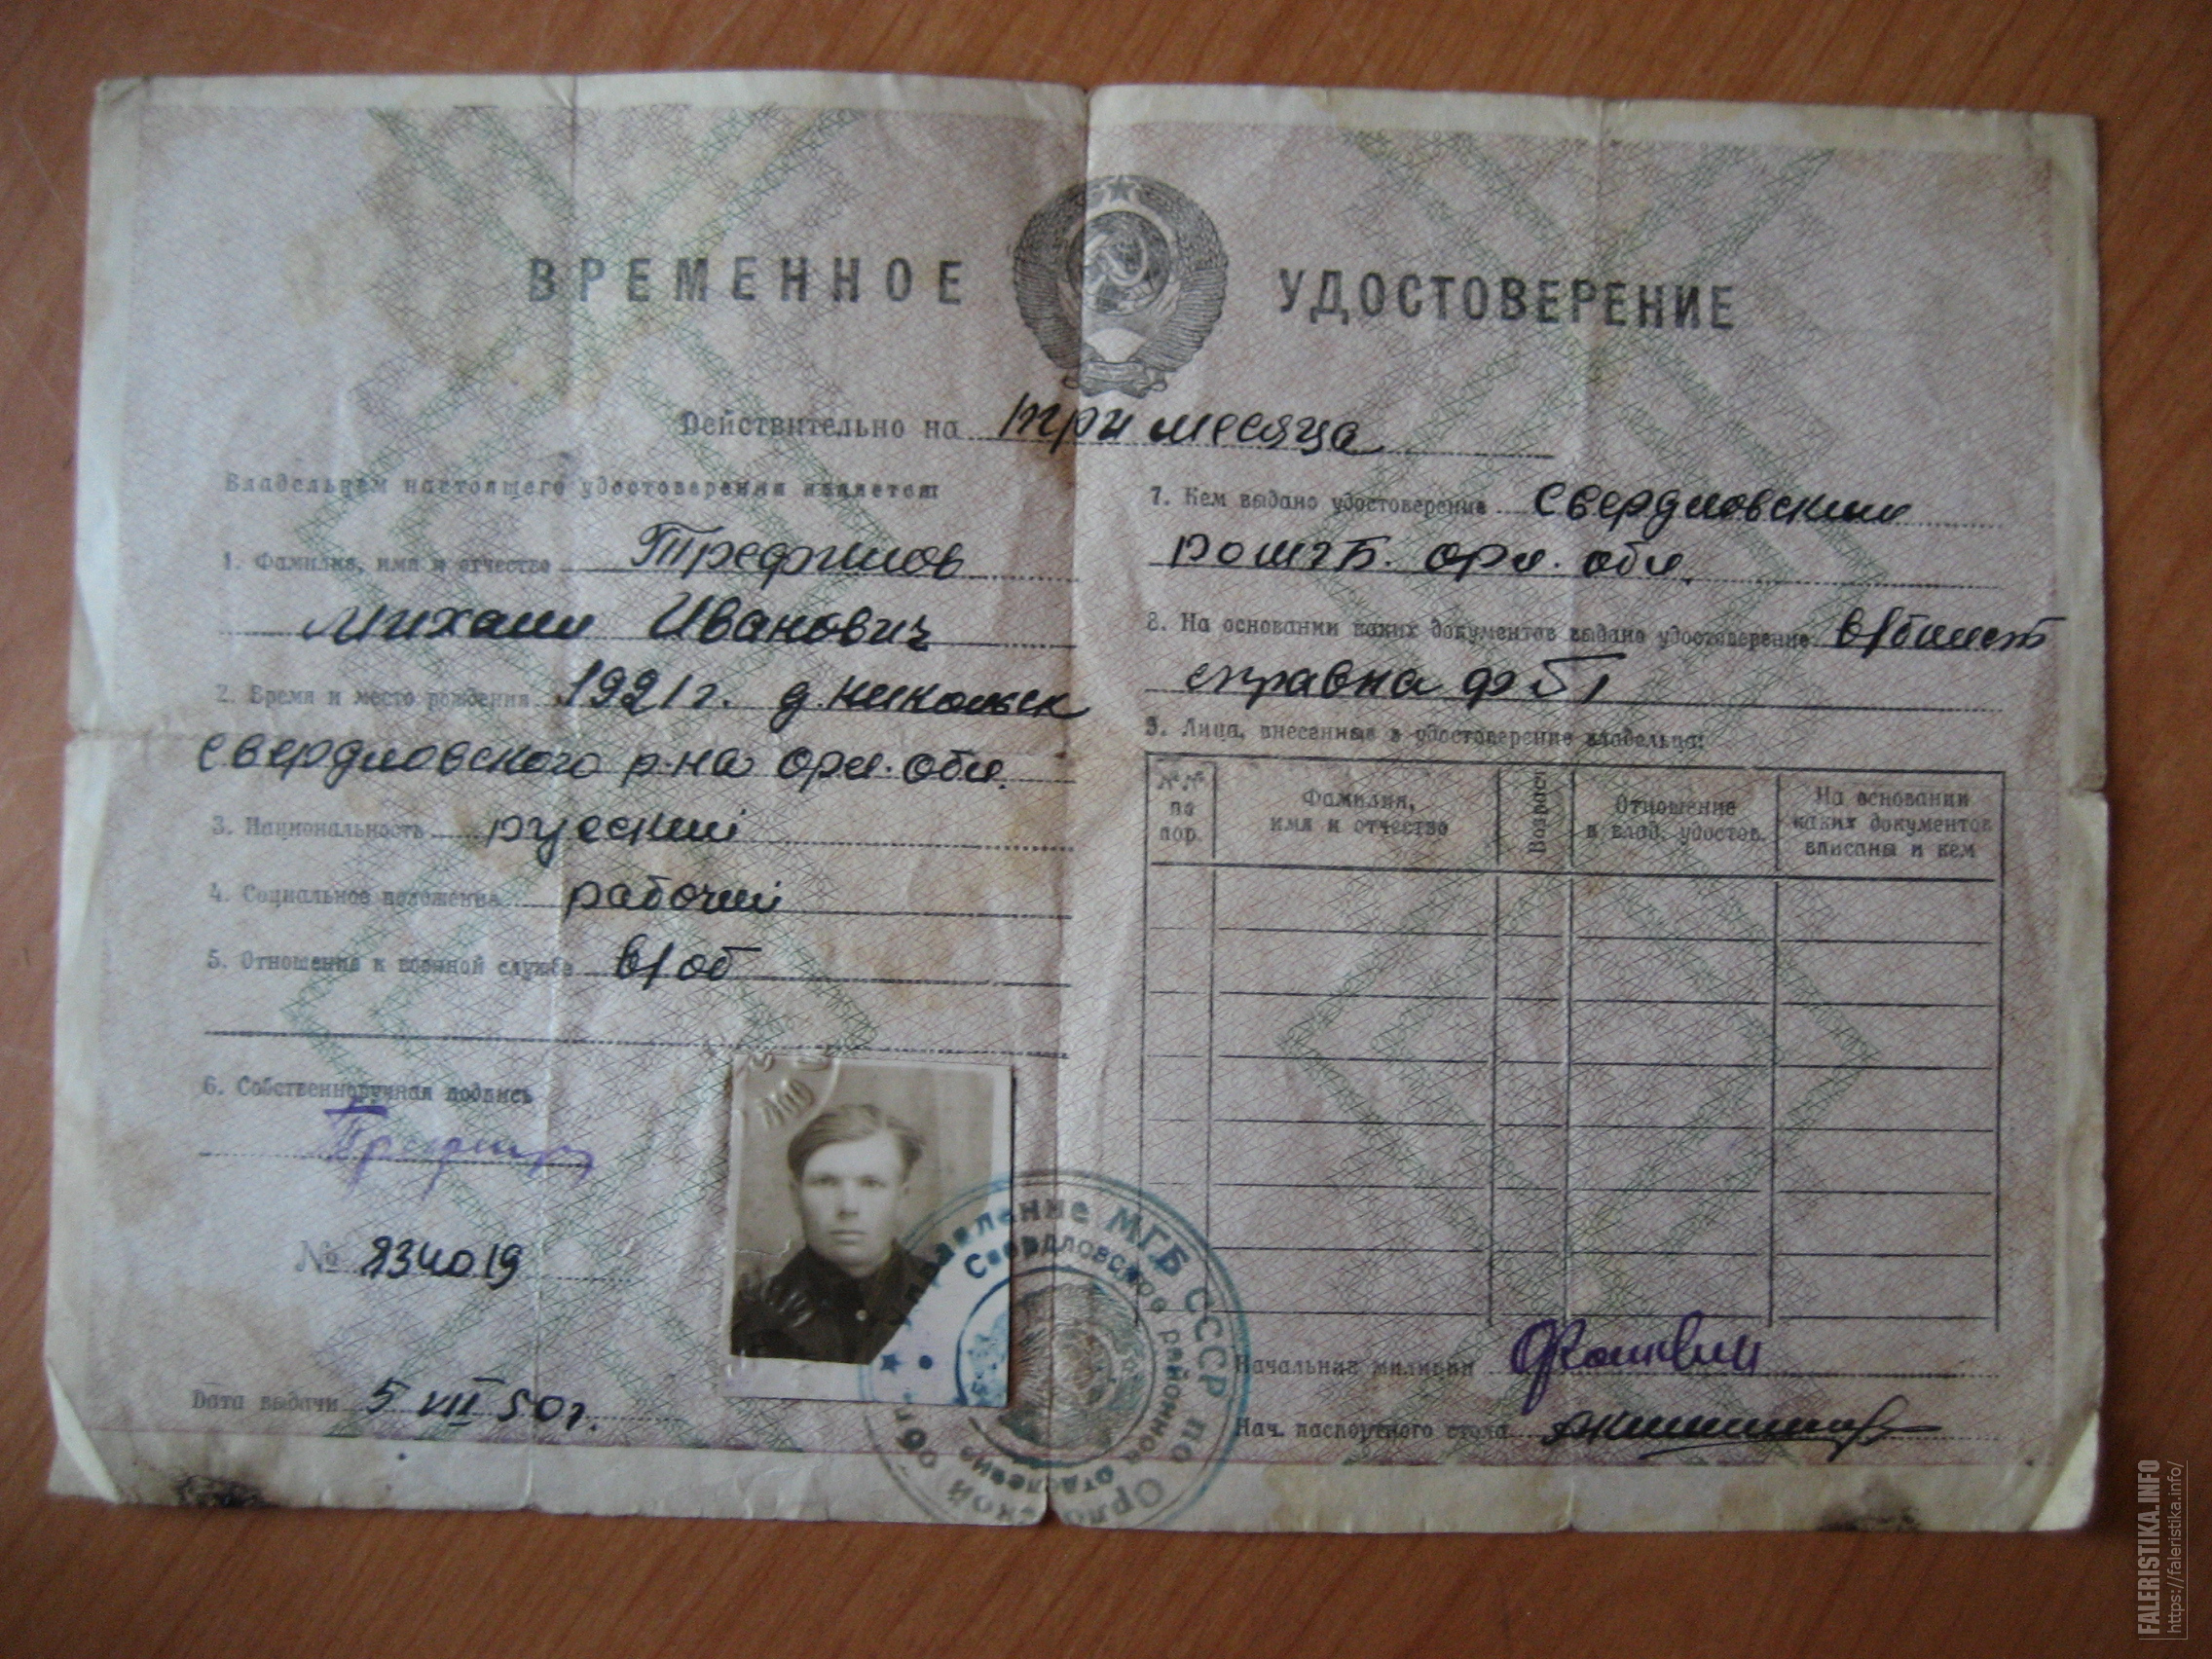 ВРЕМЕННОЕ УДОСТОВЕРЕНИЕ
Действительно на три месяца
Владельцем настоящего удостоверения является:
1. Фамилия, имя и отчество Трефилов
Михаил Иванович
2. Время и место рождения 1921 г. д. Никольск
Свердловского р-на орл. обл.
3. Национальность русский
4. Социальное положение рабочий
5. Отношение к военной службе в/об
6. Собственноручная подпись
№
Дата выдачи 5 VII 50 г.
7. Кем выдано удостоверение Свердловским
РОМГБ. орл. обл.
8. На основании каких документов выдано удостоверение в/билет
справка ф
9. Лица, внесенные в удостоверение владельца:
№№ по пор.
Фамилия, имя и отчество
Возраст
Отношение к влад. удостов.
На основании каких документов вписаны и кем
Начальник милиции
Нач. паспортного стола
Управление МГБ СССР по Орловской обл.
Свердловское районное отделение
FALERISTIKA.INFO
https://faleristika.info/